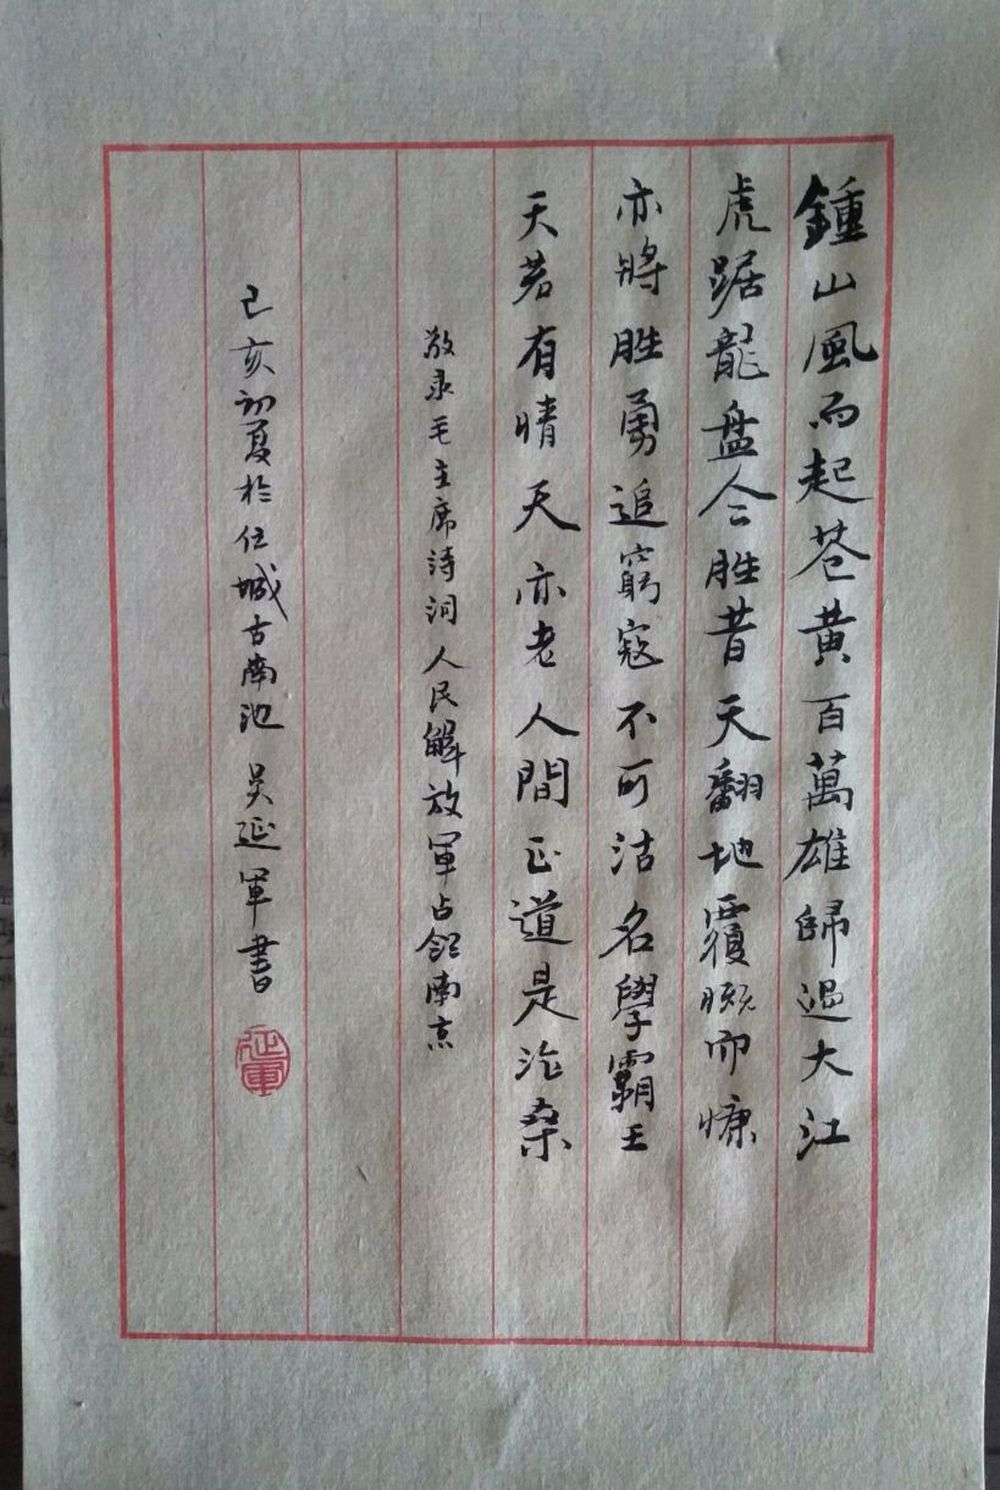 鍾山風雨起苍黄百萬雄師過大江
虎踞龍盘今胜昔天翻地覆慨而慷
亦將胜勇追窮寇不可沽名學霸王
天若有晴天亦老人間正道是沧桑
敬录毛主席诗词人民解放軍占领南京
己亥初夏於任城古南池 吴延軍書
延軍